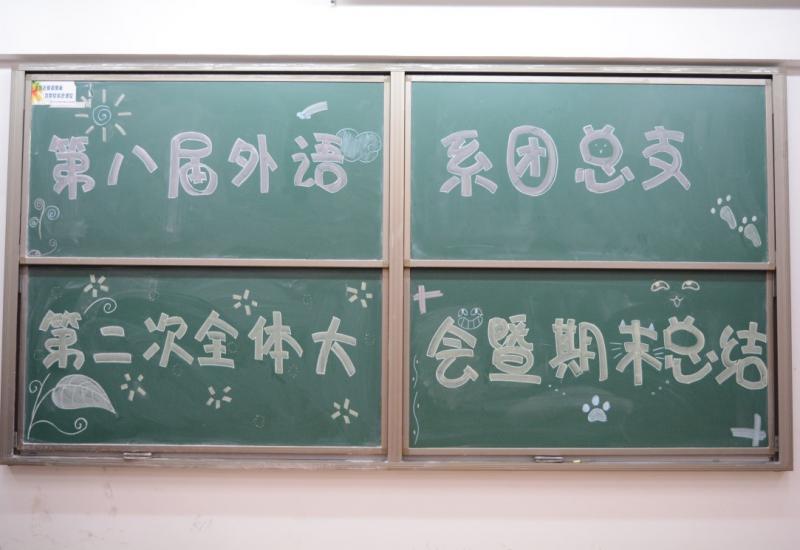 第八届外语系团总支
第二次全体大会暨期末总结